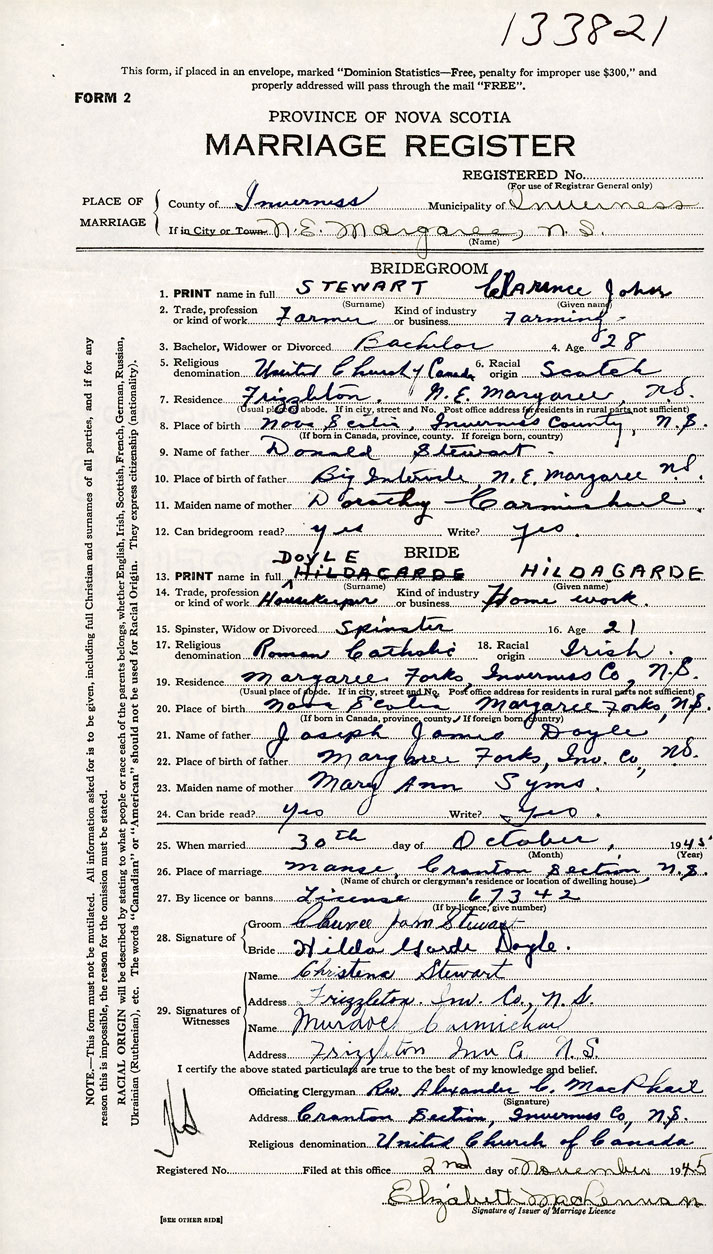 133821
This form, if placed in an envelope, marked “Dominion Statistics—Free, penalty for improper use $300,” and
properly addressed will pass through the mail “FREE”.
FORM 2
PROVINCE OF NOVA SCOTIA
MARRIAGE REGISTER
REGISTERED No.
(For use of Registrar General only)
PLACE OF MARRIAGE
County of Inverness Municipality of Inverness
If in City or Town N.E. Margaree, N.S.
(Name)
BRIDEGROOM
1. PRINT name in full STEWART Clarence John
(Surname) (Given name)
2. Trade, profession or kind of work Farmer Kind of industry or business Farming
3. Bachelor, Widower or Divorced Bachelor 4. Age 28
5. Religious denomination United Church of Canada 6. Racial origin Scotch
7. Residence Frizzleton, N.E. Margaree, N.S.
(Usual place of abode. If in city, street and No. Post office address for residents in rural parts not sufficient)
8. Place of birth Nova Scotia, Inverness County, N.S.
(If born in Canada, province, county. If foreign born, country)
9. Name of father Donald Stewart
10. Place of birth of father Big Intervale, N.E. Margaree N.S.
11. Maiden name of mother Dorathy Carmichael
12. Can bridegroom read? yes Write? yes.
BRIDE
DOYLE
13. PRINT name in full HILDAGARDE HILDAGARDE
(Surname) (Given name)
14. Trade, profession or kind of work Housekeeper Kind of industry or business Home work.
15. Spinster, Widow or Divorced Spinster 16. Age 21
17. Religious denomination Roman Catholic 18. Racial origin Irish.
19. Residence Margaree Forks, Inverness Co, N.S.
(Usual place of abode. If in city, street and No. Post office address for residents in rural parts not sufficient)
20. Place of birth Nova Scotia Margaree Forks, N.S.
(If born in Canada, province, county. If foreign born, country)
21. Name of father Joseph James Doyle
22. Place of birth of father Margaree Forks, Inv. Co, N.S.
23. Maiden name of mother Mary Ann Syms.
24. Can bride read? yes Write? yes.
25. When married 30th day of October, 1945
(Month) (Year)
26. Place of marriage Manse, Cranton Section N.S.
(Name of church or clergyman's residence or location of dwelling house)
27. By licence or banns License 67342
(If by licence, give number)
28. Signature of
Groom Stewart
Bride Hilda Garde Doyle.
29. Signatures of Witnesses
Name Christena Stewart
Address Frizzleton. Inv. Co., N.S.
Name Murdoch Carmichael
Address Frizzleton Inv Co. N.S.
I certify the above stated particulars are true to the best of my knowledge and belief.
Officiating Clergyman Rev. Alexander C. MacPhail
(Signature)
Address Cranton Section, Inverness Co, N.S.
Religious denomination United Church of Canada
Registered No. Filed at this office 2nd day of November 1945
Elizabeth MacLennan
Signature of Issuer of Marriage Licence
[SEE OTHER SIDE]
NOTE.—This form must not be mutilated. All information asked for is to be given, including full Christian and surnames of all parties, and if for any
reason this is impossible, the reason for the omission must be stated.
RACIAL ORIGIN will be described by stating to what people or race each of the parents belongs, whether English, Irish, Scottish, French, German, Russian,
Ukrainian (Ruthenian), etc. The words “Canadian” or “American” should not be used for Racial Origin. They express citizenship (nationality).